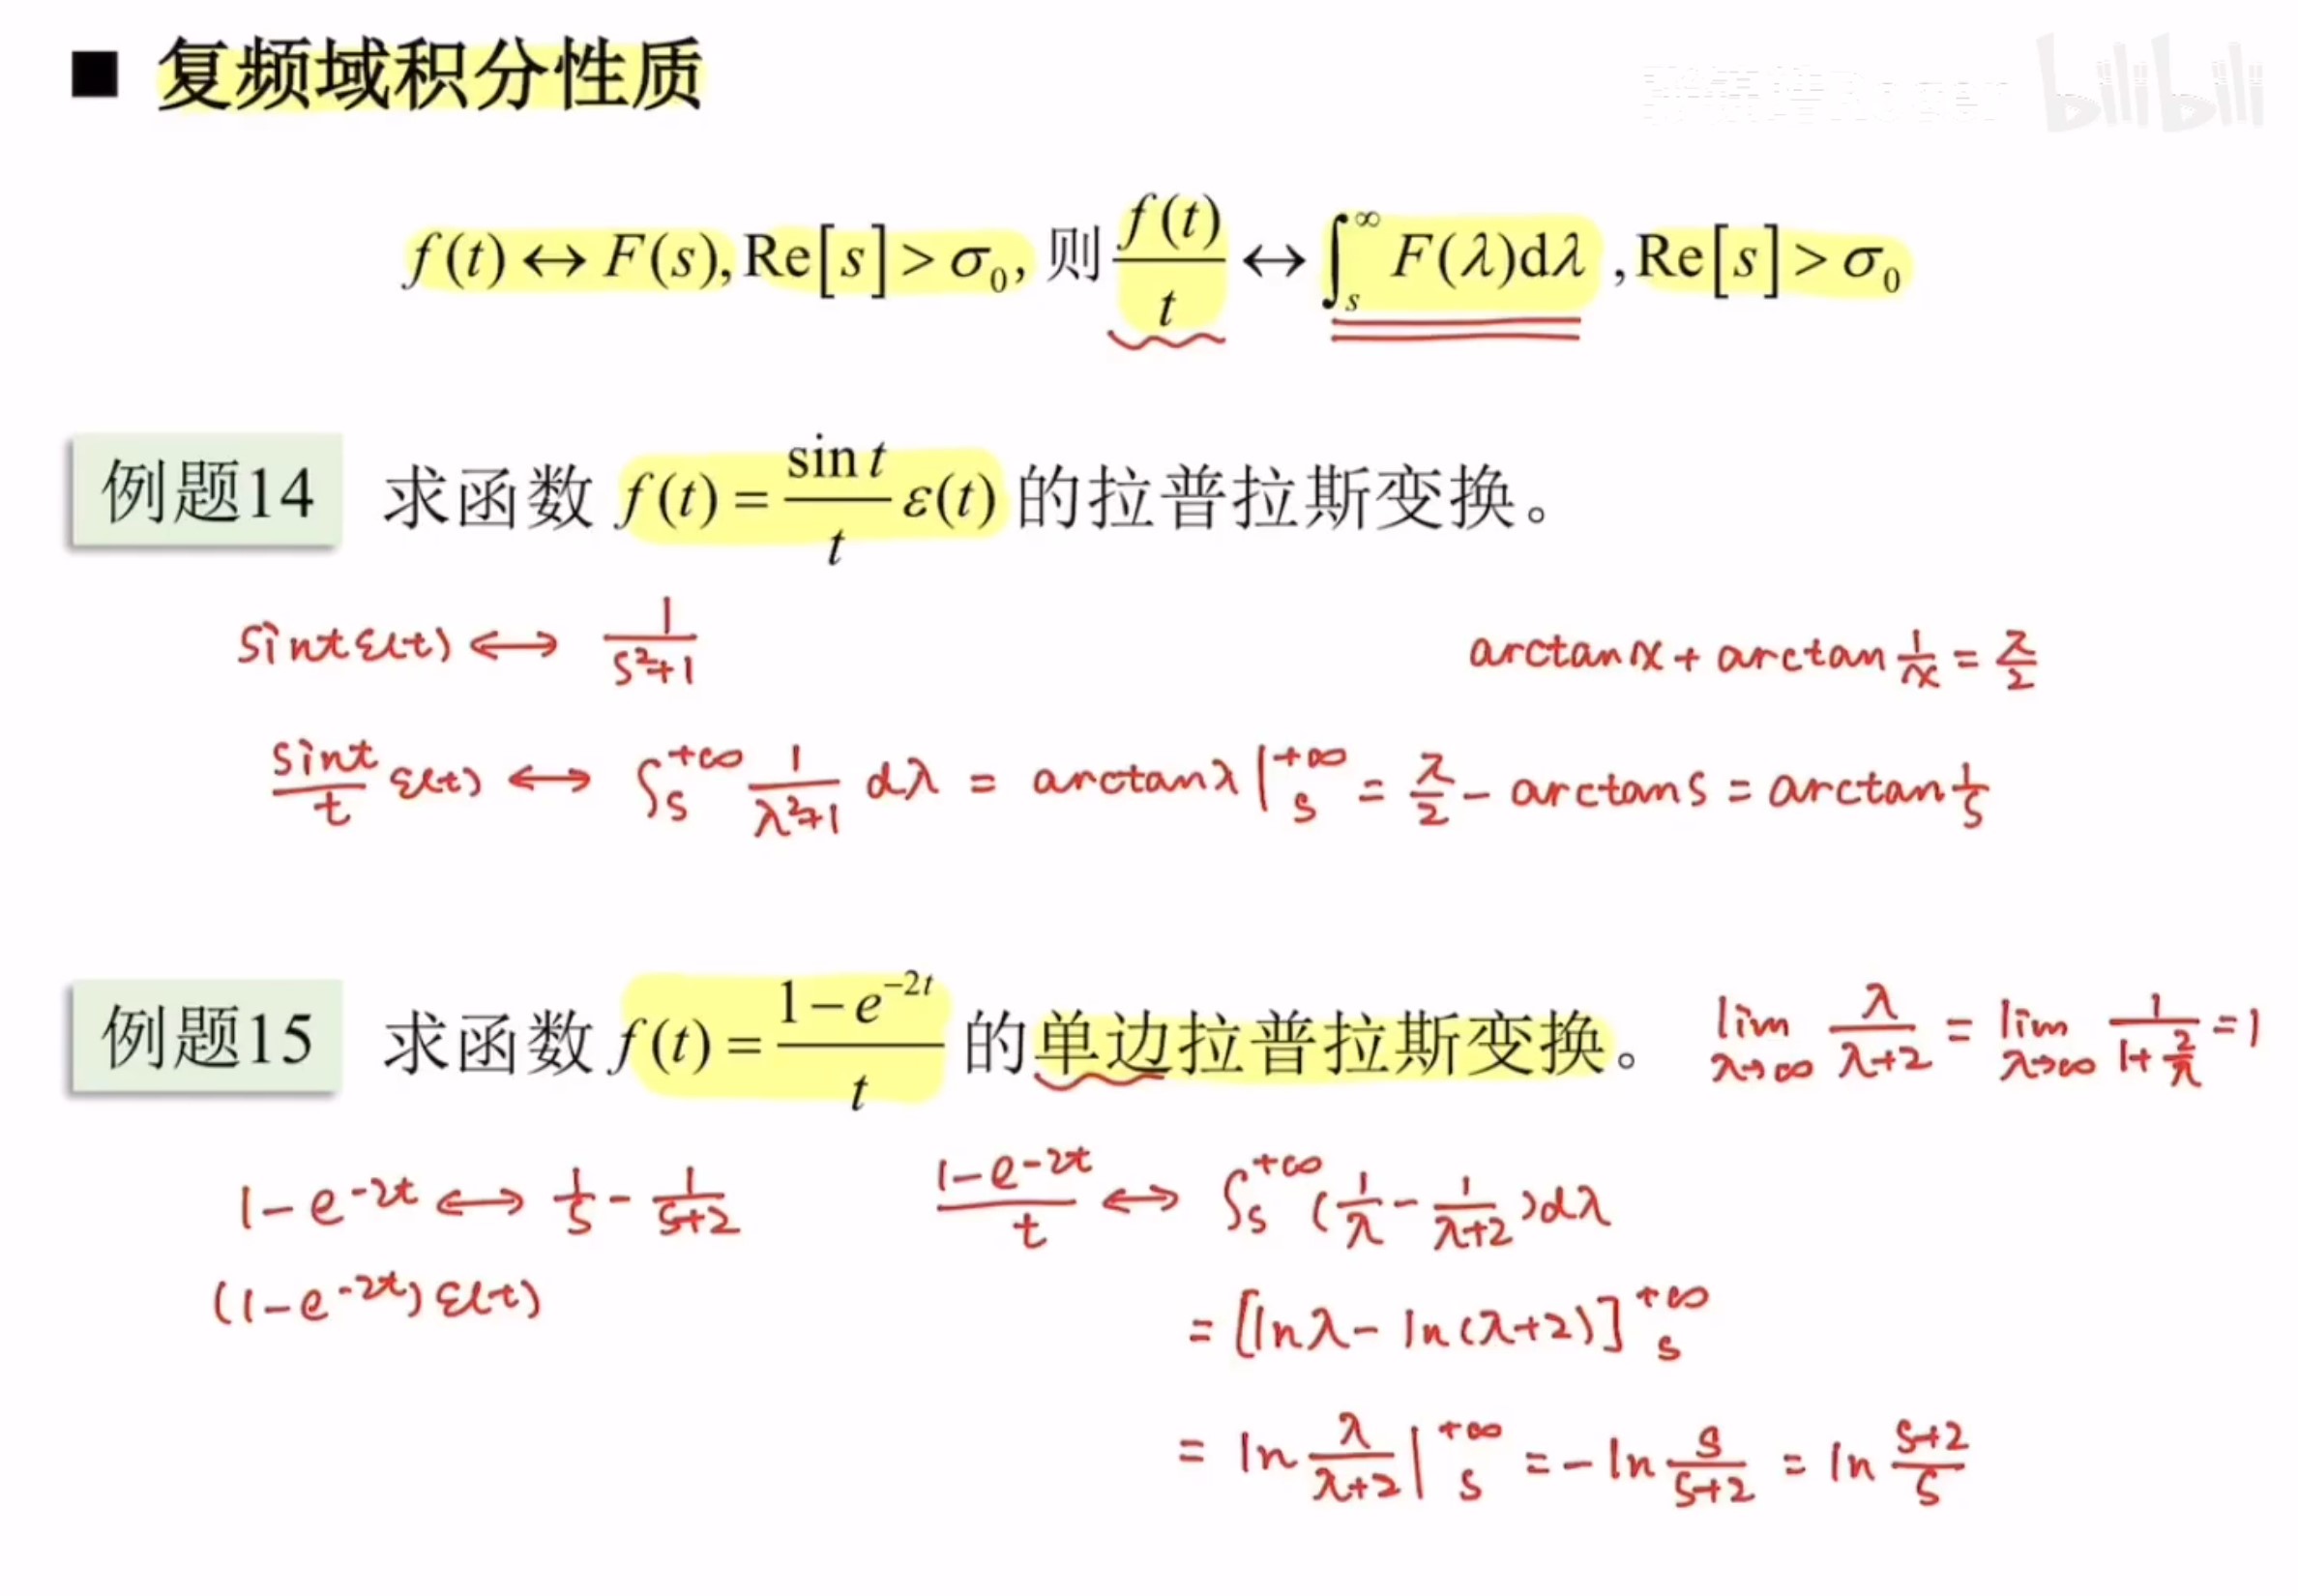 ■ 复频域积分性质
bilibili
f(t)↔F(s), Re[s]>σ₀, 则 f(t)/t ↔ ∫_s^∞ F(λ)dλ, Re[s]>σ₀
例题14 求函数 f(t)= sin t / t ε(t) 的拉普拉斯变换。
sint ε(t) ↔ 1/(s²+1)
arctan x + arctan 1/x = π/2
sint/t ε(t) ↔ ∫_s^{+∞} 1/(λ²+1) dλ = arctanλ |_s^{+∞} = π/2 - arctan s = arctan 1/s
例题15 求函数 f(t)= (1-e^{-2t})/t 的单边拉普拉斯变换。
lim_{λ→∞} λ/(λ+2) = lim_{λ→∞} 1/(1+2/λ) = 1
1-e^{-2t} ↔ 1/s - 1/(s+2)
(1-e^{-2t}) ε(t)
(1-e^{-2t})/t ↔ ∫_s^{+∞} (1/λ - 1/(λ+2))dλ
= [lnλ - ln(λ+2)]_s^{+∞}
= ln λ/(λ+2) |_s^{+∞} = -ln s/(s+2) = ln (s+2)/s